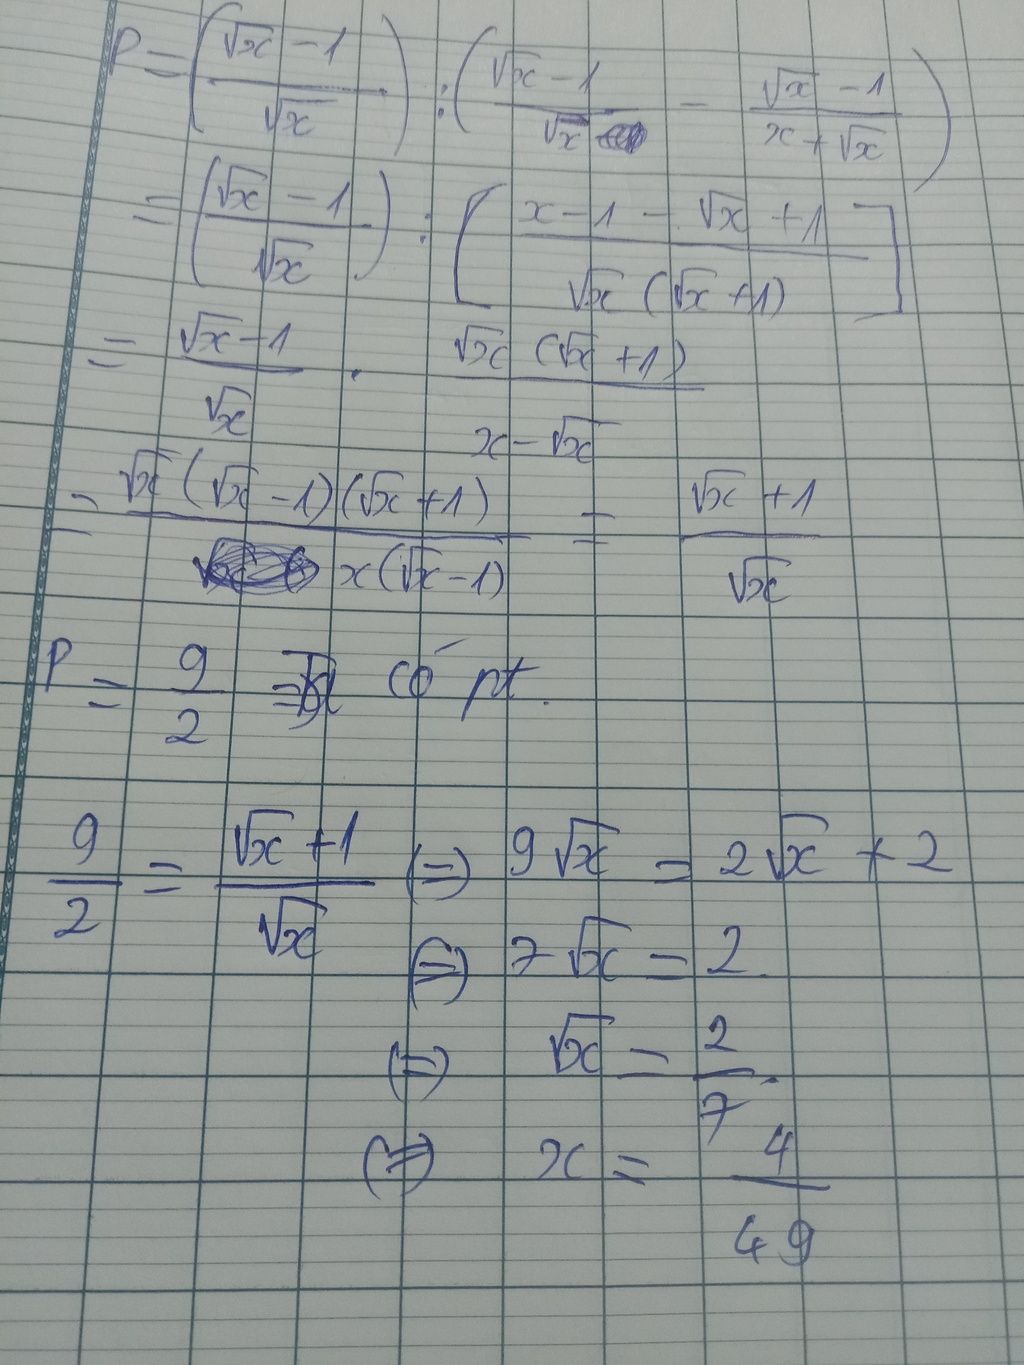 P = (√x - 1 / √x) : (√x - 1 / √x - √x - 1 / x + √x)
= (√x - 1 / √x) : [x - 1 - √x + 1 / √x (√x + 1)]
= √x - 1 / √x . √x (√x + 1) / x - √x
= √x (√x - 1)(√x + 1) / x(√x - 1) = √x + 1 / √x
P = 9/2 => có pt.
9/2 = √x + 1 / √x (=) 9√x = 2√x + 2
(=) 7√x = 2
(=) √x = 2/7.
(=) x = 4/49